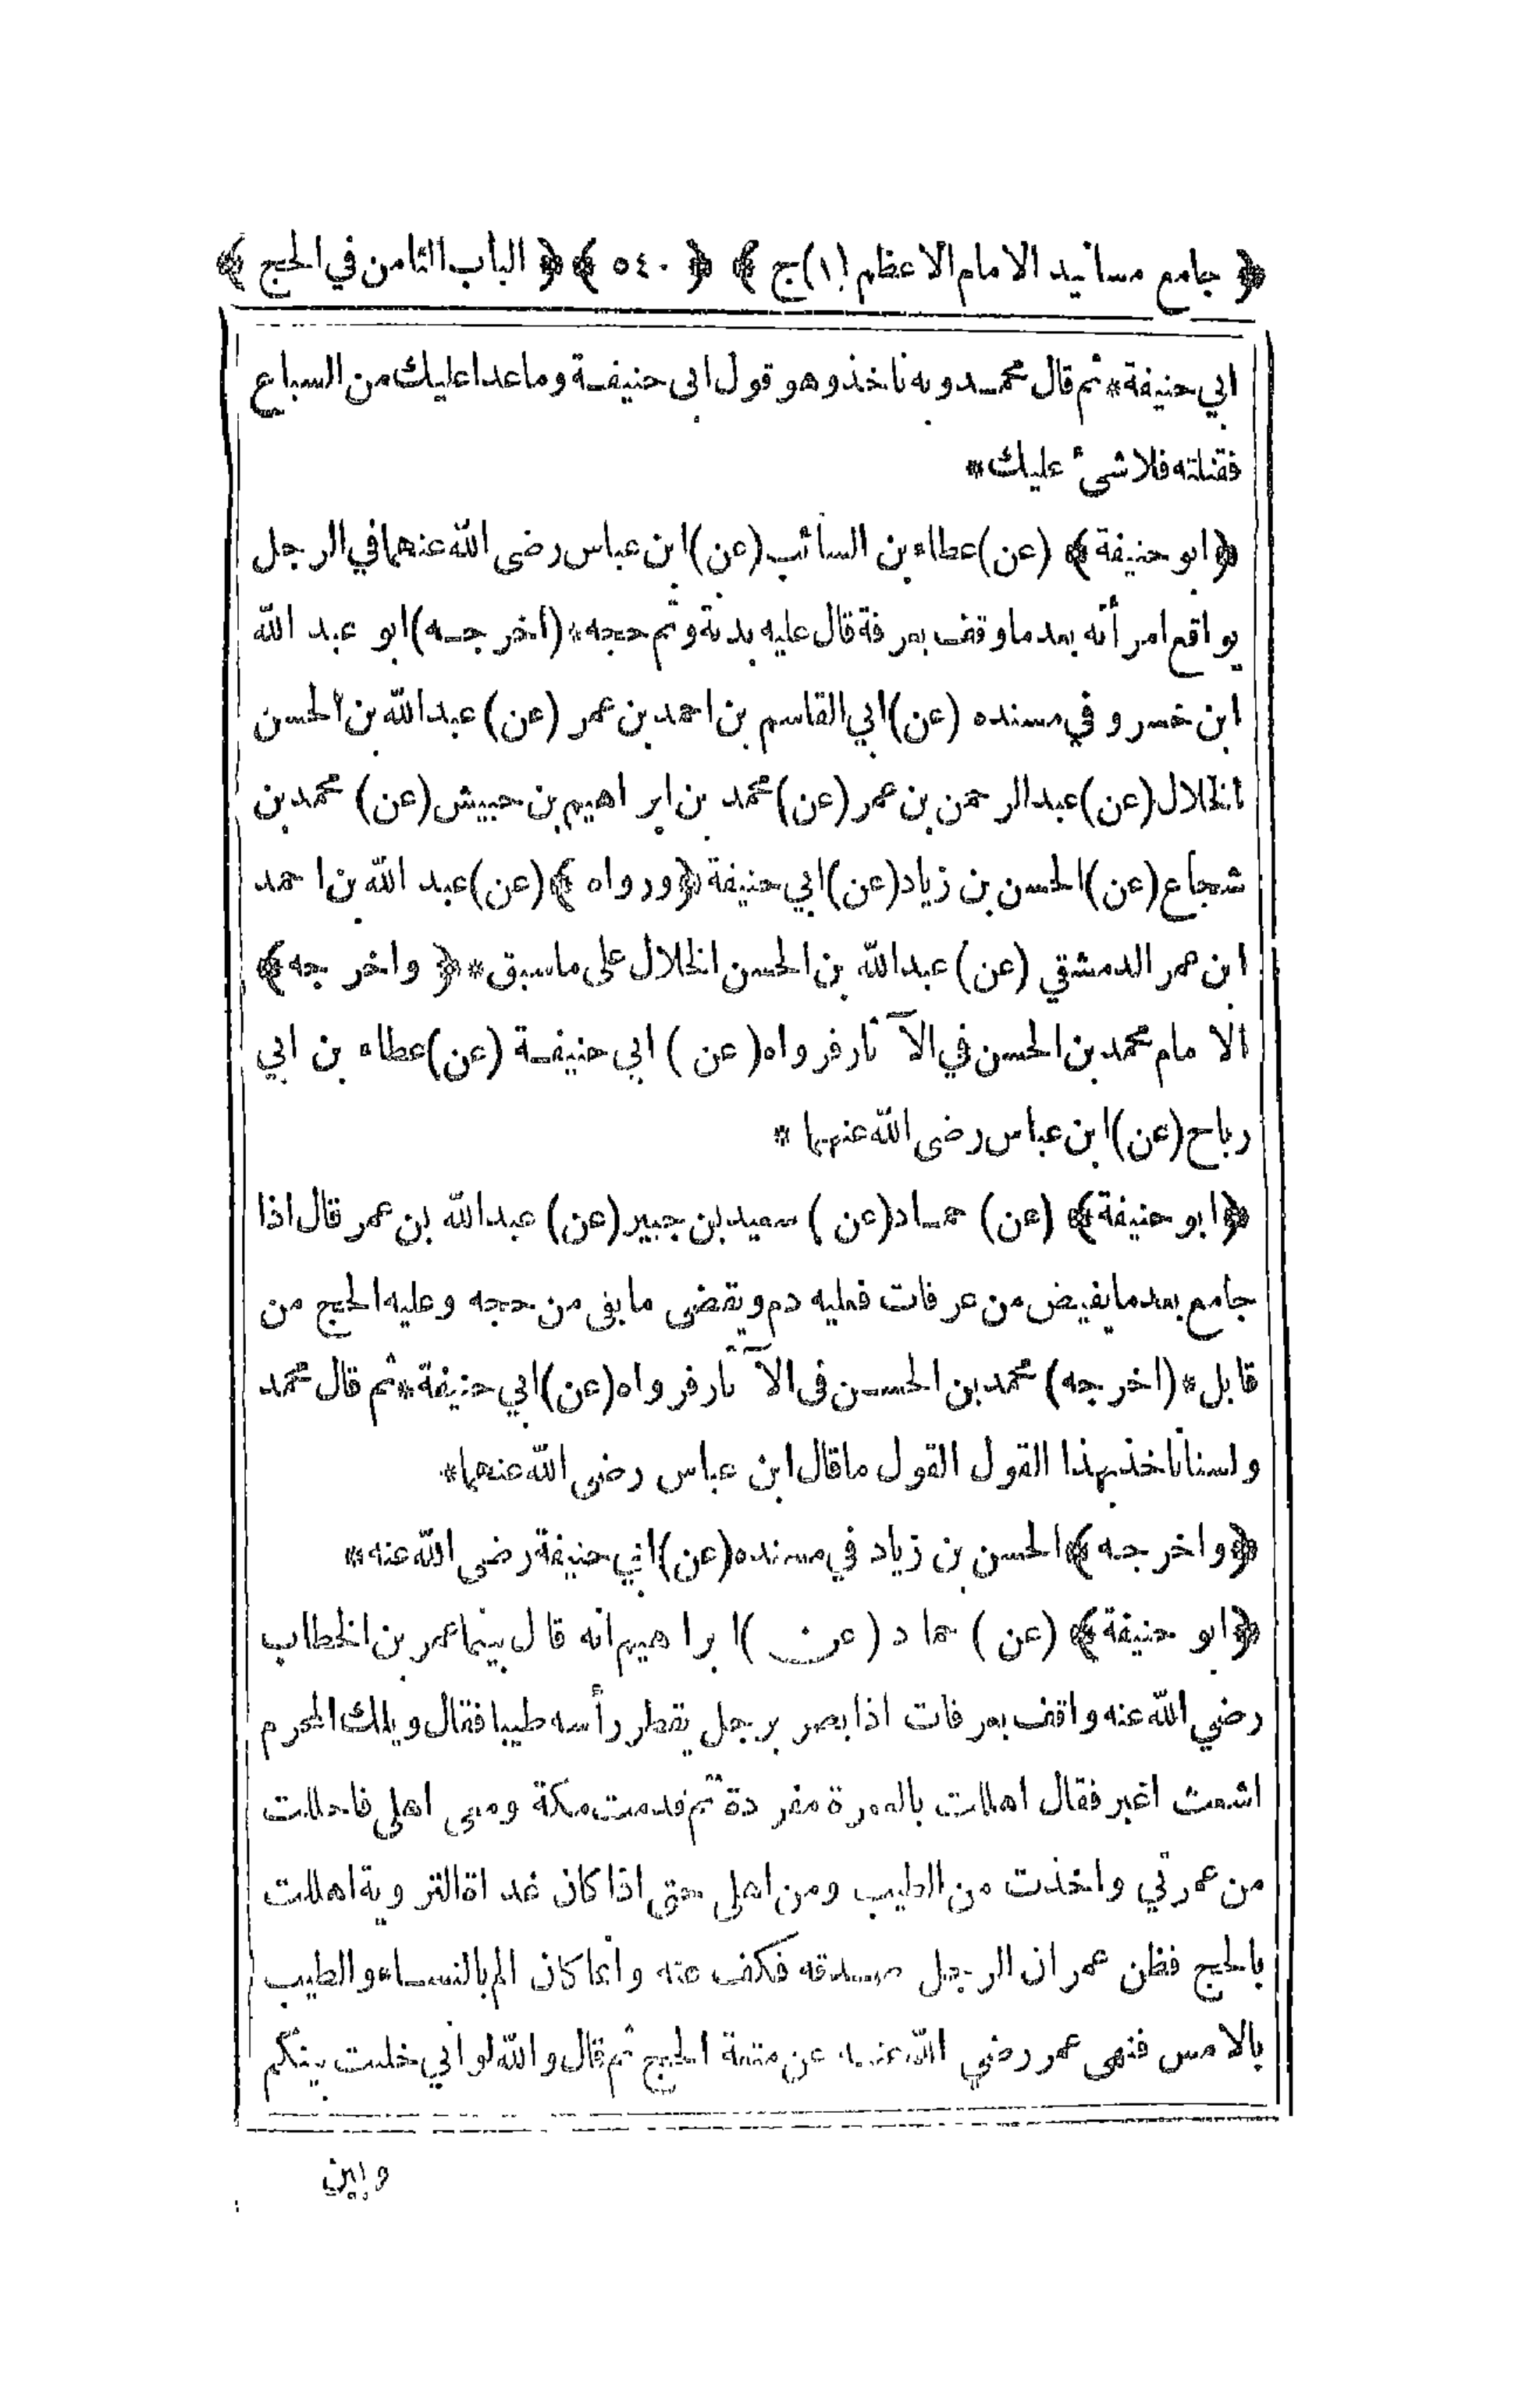 ﴿ جامع مسانيد الامام الاعظم (١)ج ﴾ ﴿ ٥٤٠ ﴾ ﴿ الباب الثامن في الحج ﴾
ابي حنيفة * ثم قال محمد وبه ناخذ وهو قول ابى حنيفة وما عدا عليك من السباع
فقتلته فلا شىء عليك *
﴿ابو حنيفة﴾ (عن) عطاء بن السائب (عن) ابن عباس رضى الله عنهما في الرجل
يواقع امرأته بعد ما وقف بعرفة قال عليه بدنة وتم حجه * (اخرجه) ابو عبد الله
ابن خسرو في مسنده (عن) ابي القاسم بن احمد بن عمر (عن) عبدالله بن الحسن
الخلال (عن) عبدالرحمن بن عمر (عن) محمد بن ابراهيم بن حبيش (عن) محمد بن
شجاع (عن) الحسن بن زياد (عن) ابي حنيفة ﴿ورواه﴾ (عن) عبد الله بن احمد
ابن عمر الدمشقي (عن) عبدالله بن الحسن الخلال على ماسبق * ﴿واخرجه﴾
الامام محمد بن الحسن في الآثار فرواه (عن) ابي حنيفة (عن) عطاء بن ابي
رباح (عن) ابن عباس رضى الله عنهما *
﴿ابو حنيفة﴾ (عن) حماد (عن) سعيد بن جبير (عن) عبدالله بن عمر قال اذا
جامع بعد ما يفيض من عرفات فعليه دم ويقضى مابقى من حجه وعليه الحج من
قابل * (اخرجه) محمد بن الحسن فى الآثار فرواه (عن) ابي حنيفة * ثم قال محمد
ولسنا ناخذ بهذا القول القول ماقال ابن عباس رضى الله عنهما *
﴿واخرجه﴾ الحسن بن زياد في مسنده (عن) ابي حنيفة رضى الله عنه *
﴿ابو حنيفة﴾ (عن) حماد (عن) ابراهيم انه قال بينما عمر بن الخطاب
رضي الله عنه واقف بعرفات اذا بصر برجل يقطر رأسه طيبا فقال ويلك المحرم
اشعث اغبر فقال اهللت بالعمرة مفردة ثم قدمت مكة ومعى اهلى فاحللت
من عمرتي واخذت من الطيب ومن اهلى حتى اذا كان غداة التروية اهللت
بالحج فظن عمر ان الرجل صدقه فكف عنه وانما كان الم بالنساء والطيب
بالامس فنهى عمر رضي الله عنه عن متعة الحج ثم قال والله لو اني خليت بينكم
وبين